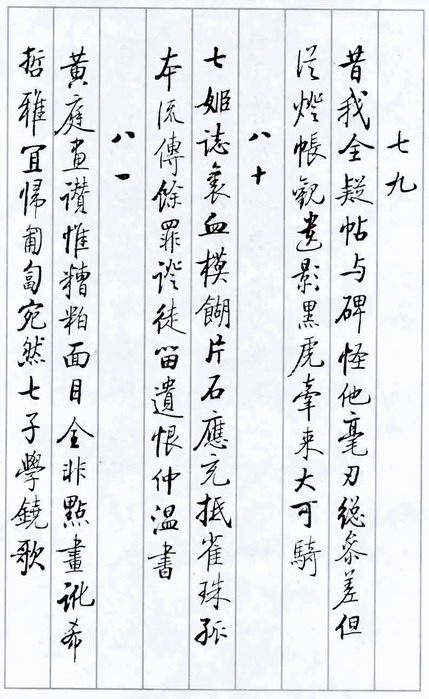 七九
昔我全疑帖与碑怪他毫刃総参差但
從燈帳觀遺影黑虎牽来大可騎
八十
七姬誌裏血模餬片石應充抵雀珠孤
本流傳餘罪證徒留遺恨仲温書
八一
黄庭畫讚惟糟粕面目全非點畫訛希
哲雅宜歸匍匐宛然七子學鐃歌